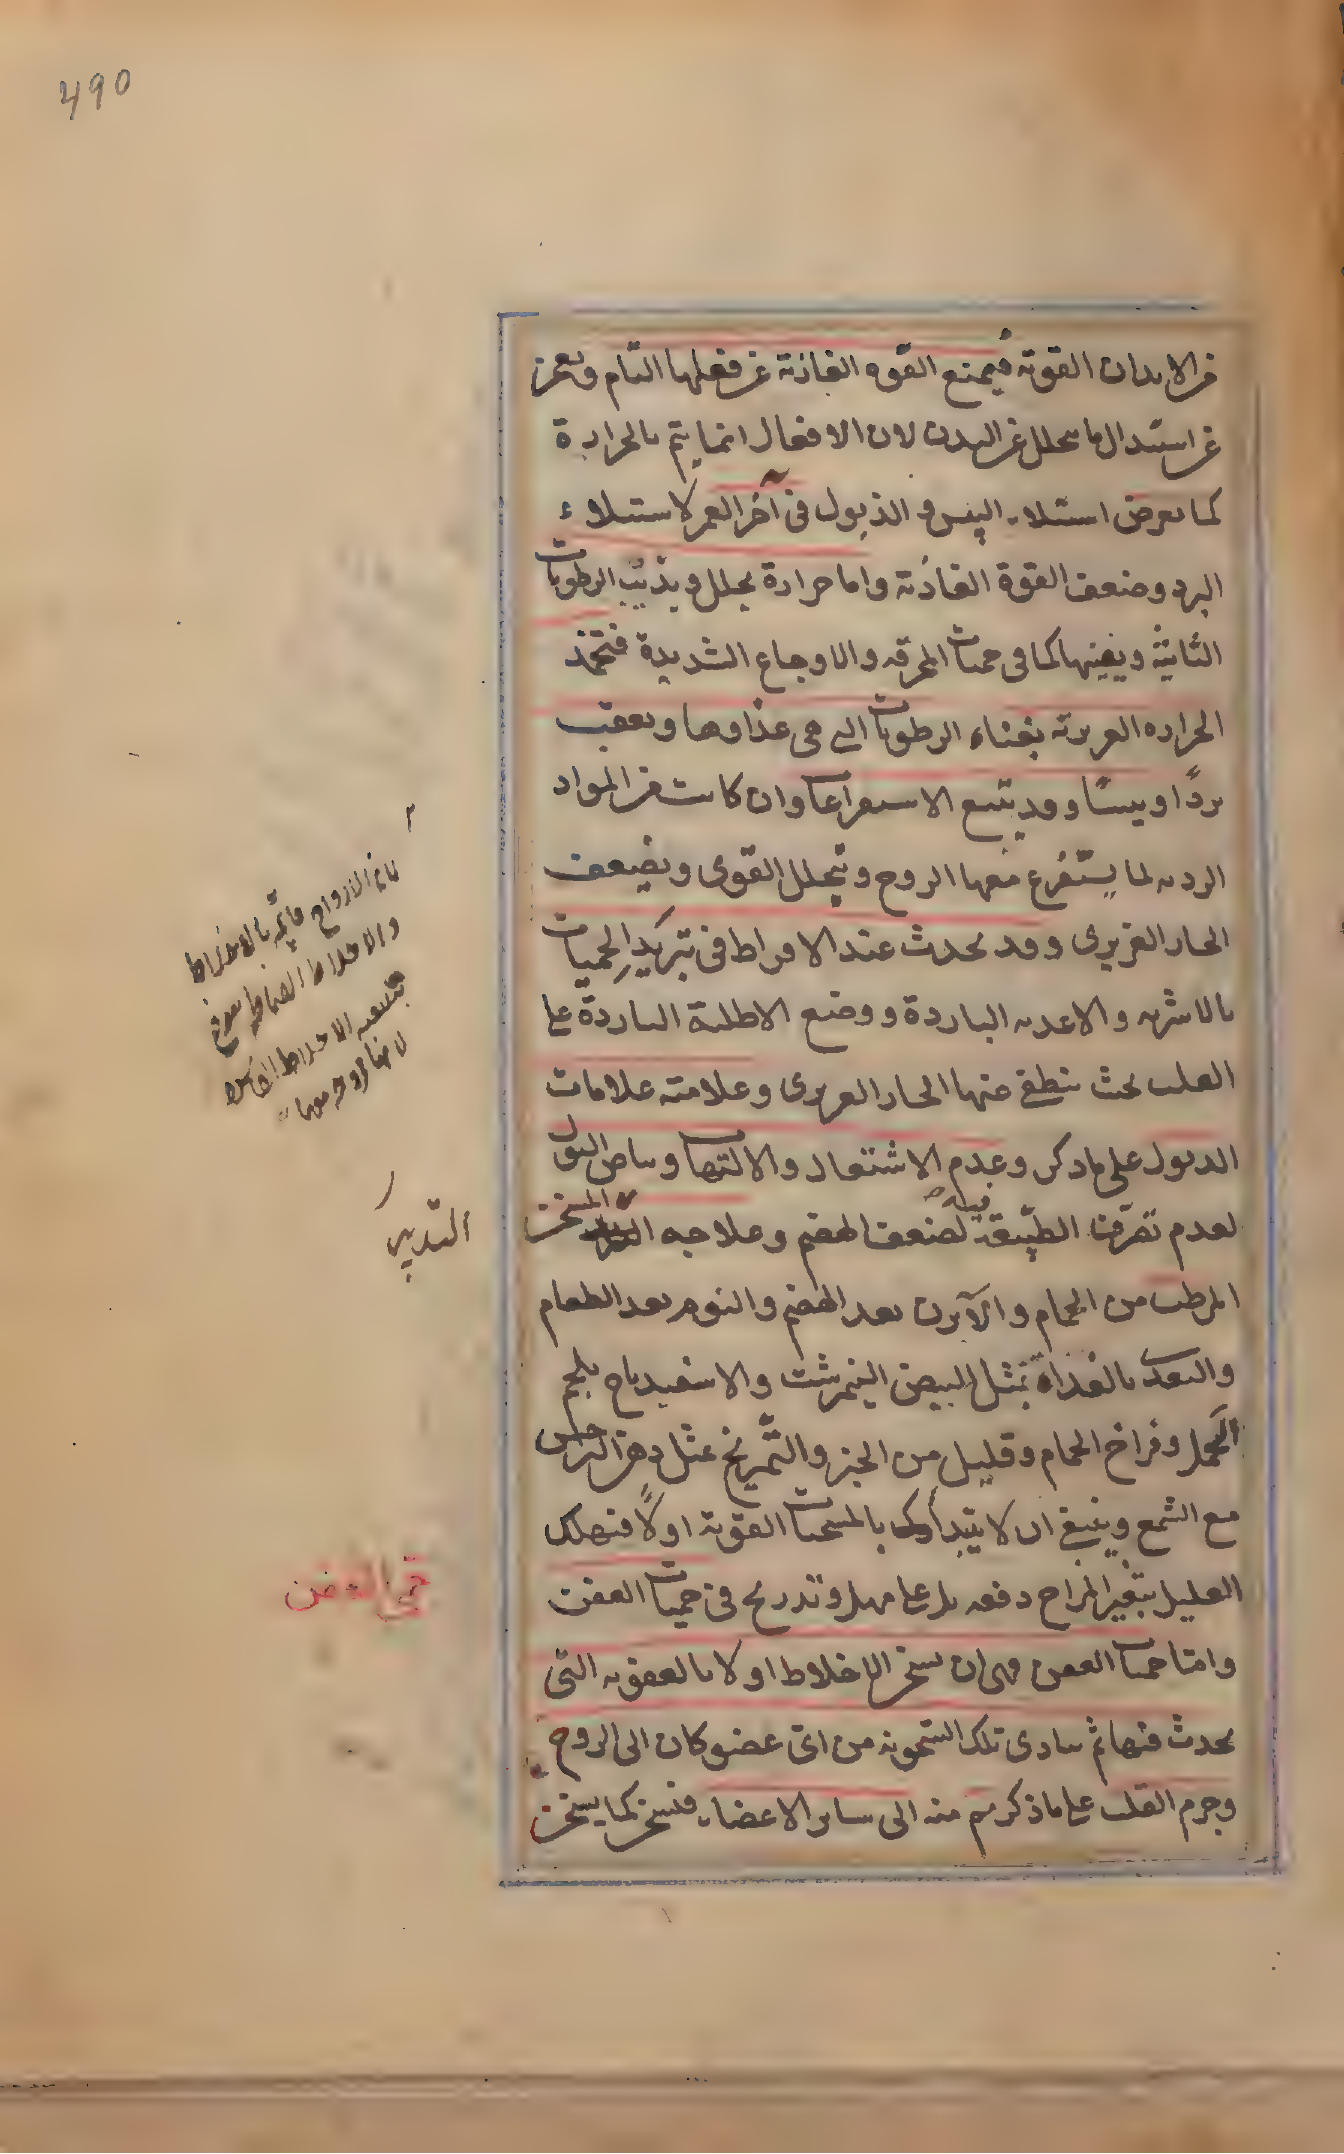 490
من الابدان القوية فيمنع القوة الغاذية عن فعلها التام ويعجز
عن استبدال ما يتحلل عن البدن لان الافعال انما يتم بالحرارة
كما يعرض استيلاء اليبس و الذبول فى آخر العمر لاستيلاء
البرد وضعف القوة الغاذية واما حرارة يحلل ويذيب الرطوبات
الثانية ويفنيها كما فى حميات المحرقه والاوجاع الشديدة فتخمد
الحراره الغريزية بفناء الرطوبات التى هى غذاوها ويعقب
بردًا ويبسًا وقد يتبع الاستفراغات وان كانت من المواد
الرديه لما يستفرغ معها الروح ويتحلل القوى ويضعف
الحار الغريزى وقد يحدث عند الافراط فى تبريد الحميات
بالاشربه والاغديه الباردة ووضع الاطلية الباردة على
القلب بحيث ينطفى عنها الحار الغريزى وعلامته علامات
الدبول على ما ذكر وعدم الاشتعال والالتهاب وبياض البول
لعدم تصرف الطبيعة فيه لضعف الهضم وعلاجه المسخن
المرطب من الحمام والآبزن بعد الهضم والنوم بعد الطعام
والتغدى بالغذاء بمثل البيض النيمرشت والاسفيدباج بلحم
الحمل وفراخ الحمام وقليل من الخبز والتمريخ بمثل دهن النرجس
مع الشمع وينبغى ان لا يتبدارك بالمسخنات القوية اولًا فيهلك
العليل بتغير المزاج دفعه بل على مهل وتدريج فى حميات العفن
وامّا حميات العفن فهى ان تسخن الاخلاط اولا بالعفونه التى
يحدث فيها ثم يتادى تلك السخونه من اىّ عضو كان الى الروح
وجرم القلب على ما ذكر ثم منه الى ساير الاعضاء فتسخن كما يسخن
لان الارواح قايمة بالاخلاط
والاخلاط الصالحة
الاخلاط الفاسده
التدبير
حمى العفن